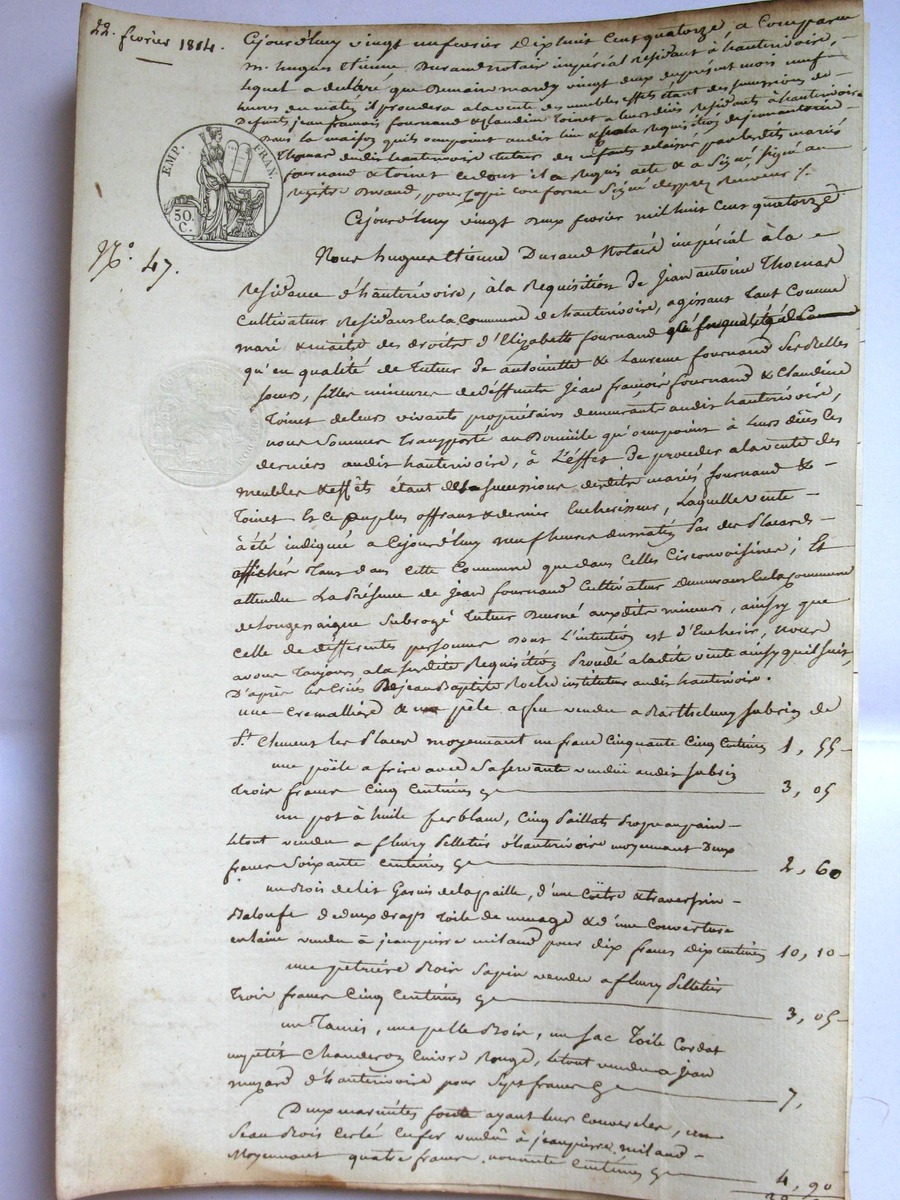 22. fevrier 1814.
Cejourd'huy vingt un fevrier dix huit cent quatorze, a comparu
m.e hugues Etienne Durand notaire impérial résidant à hauterivoire,
lequel a declaré que demain mardy vingt deux du présent mois neuf
heures du matin il procedera a la vente des meubles effets étant des successions de
Defunts jean francois fournand & Claudine Toinet a leurs décès residants à hauterivoire
dans la maison qu'ils occupoient audit lieu & par la requisition de jean antoine
Thomas dudit hauterivoire tuteur des enfants delaissés par les dits mariés
fournand & Toinet de dont il a requis acte & a signé, signé au
registre Durand, pour copie conforme signé receveur
EMP. FRAN.
50. C.
Cejourd'huy vingt deux fevrier mil huit cent quatorze
N.o 47.
Nous hugues Etienne Durand Notaire impérial à la
residence d'hauterivoire, à la requisition de Jean antoine Thomas
Cultivateur residant en la Commune de hauterivoire, agissant tant Comme
mari & maitre des droits d'Elizabeth fournand
qu'en qualité de Tuteur de antoinette & Laurence fournand ses belles
soeurs, filles mineures de deffunts Jean françois fournand & Claudine
Toinet de leurs vivants propriétaires demeurants audit hauterivoire,
nous sommes transporté au Domicile qu'occupoient à leurs décès les
derniers audit hauterivoire, à L'éffet de proceder a la vente des
meubles & effêts étant de la succession desdits mariés fournand &
Toinet & ce au plus offrant & dernier Encherisseur, Laquelle vente
à été indiquée a Cejourd'huy neuf heures du matin par des Placards
affichés tant dans cette Commune que dans Celles Circonvoisines; Et
attendu La Présence de jean fournand Cultivateur demeurant en la commune
de Longessaigne subrogé tuteur Donné auxdits mineurs, ainsy que
celle de differentes personnes dont L'intention est d'Encherir, nous
avons Toujours, a la susdite Requisition Procedé a la dite vente ainsy qu'il suit,
D'après les Criés De jean Baptiste Roche instituteur audit hauterivoire.
une cremallière & une pêle a feu vendu a Barthelemy Subrin de
S.t Clement les Places moyennant un franc Cinquante Cinq Centimes 1, 55
une pöile a frire avec sa servante vendue audit Subrin
Trois francs Cinq Centimes 3, 05
un pot à huile fer blanc, Cinq Paillats
Letout vendu a fleury Pelletier d'hauterivoire moyennant Deux
francs Soixante Centimes 2, 60
un Bois de lit Garnis de la paille, d'une Coëtre & traversin
Baloufe de deux draps Toile de menage & d'une Couverture
en laine vendu à jean pierre milan pour dix francs dix centimes 10, 10
une petrière Bois Sapin vendu a fleury Pelletier
Trois francs Cinq Centimes 3, 05
un Tamis, une pelle Bois, un sac Toile Cordat
un petit Chauderon Cuivre Rouge, letout vendu a Jean
muzard d'hauterivoire pour Sept francs 7,
Deux marmites fonte ayant leur couvercles, un
Seau Bois Cerclé en fer vendu à jean pierre milan
Moyennant quatre francs nonante Centimes 4, 90